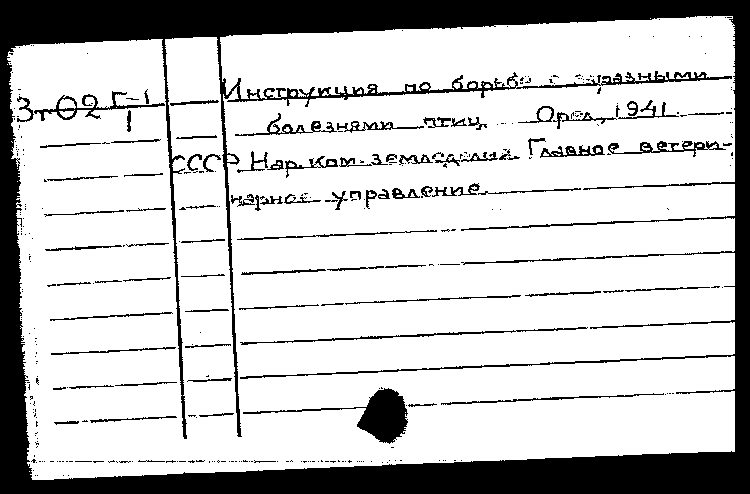 Инструкция по борьбе с заразными
3т02 Г-1/1
болезнями птиц. Орел, 1941.
СССР. Нар. ком. земледелия. Главное ветери-
нарное управление.